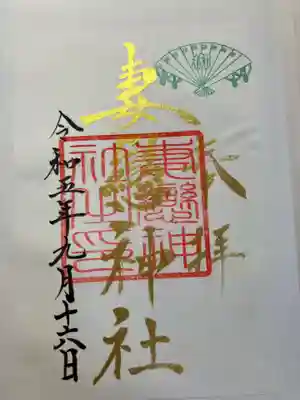 奉拝
妻戀神社
妻戀神
社之印
令和五年九月十六日